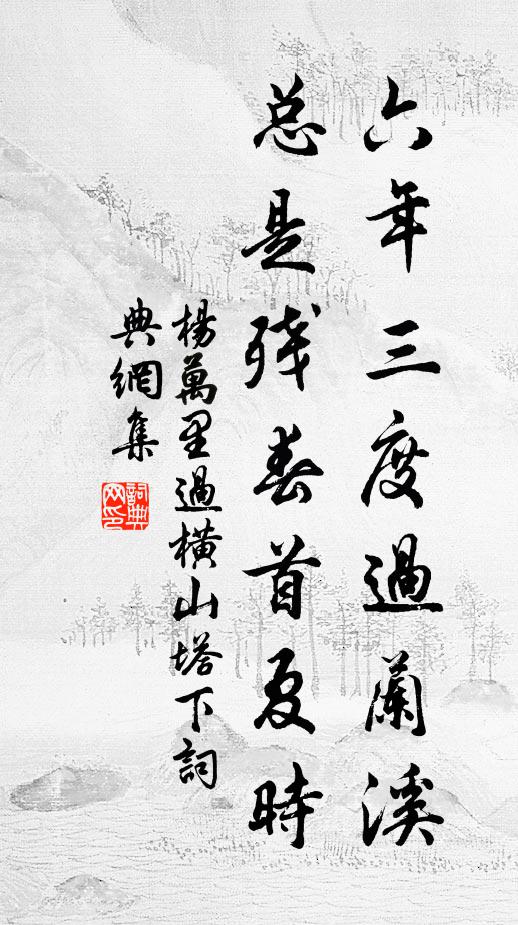 六年三度過蘭溪
总是残春首夏時
楊萬里過橫山塔下詞
典網集
詞典网印